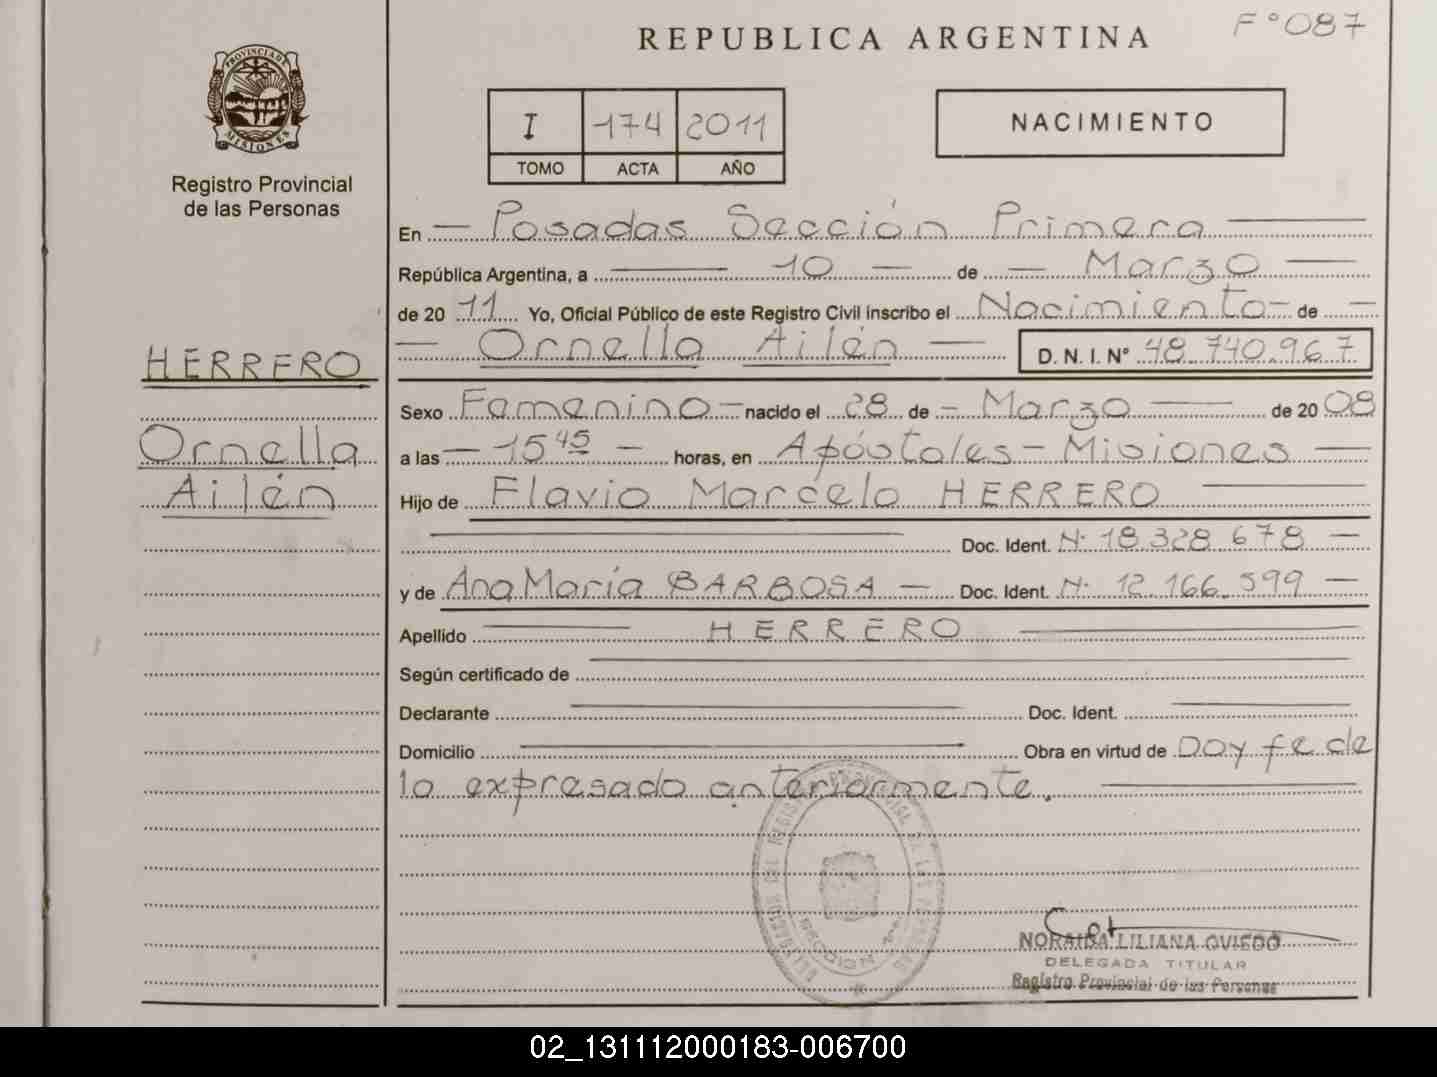 REPUBLICA ARGENTINA
F°087
PROVINCIA DE MISIONES
Registro Provincial
de las Personas
I 174 2011
TOMO ACTA AÑO
NACIMIENTO
En Posadas Sección Primera
República Argentina, a 10 de Marzo
de 2011 Yo, Oficial Público de este Registro Civil inscribo el Nacimiento de
Ornella Ailén D.N.I. N° 48.740.967
HERRERO
Ornella
Ailén
Sexo Femenino nacido el 28 de Marzo de 2008
a las 15 45 horas, en Apóstoles - Misiones
Hijo de Flavio Marcelo HERRERO
Doc. Ident. N· 18.328.678
y de Ana María BARBOSA Doc. Ident. N· 12.166.599
Apellido HERRERO
Según certificado de
Declarante Doc. Ident.
Domicilio Obra en virtud de Doy fe de
lo expresado anteriormente.
NORAIDA LILIANA OVIEDO
DELEGADA TITULAR
Registro Provincial de las Personas
02_131112000183-006700